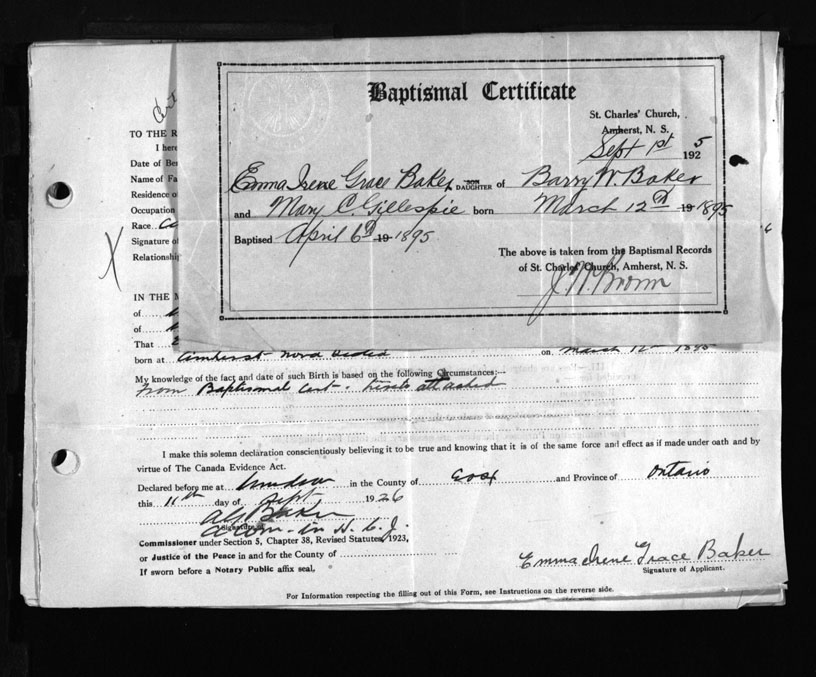 Baptismal Certificate
St. Charles' Church,
Amherst, N. S.
Sept 1st 1925
Emma Irene Grace Baker SON DAUGHTER of Barry W. Baker
and Mary C. Gillespie born March 12th 19 1895
Baptised April 6th 19 1895
The above is taken from the Baptismal Records
of St. Charles' Church, Amherst, N. S.
TO THE R
I here
Date of Ber
Name of Fa
Residence o
Occupation
Race
Signature of
Relationship
IN THE M
of
of
That
born at Amherst Nova Scotia on March 12th 1895
My knowledge of the fact and date of such Birth is based on the following Circumstances:—
From Baptismal Cert. attached
I make this solemn declaration conscientiously believing it to be true and knowing that it is of the same force and effect as if made under oath and by
virtue of The Canada Evidence Act.
Declared before me at Windsor in the County of Essex and Province of Ontario
this 11th day of Sept 1926
Baker
Signature of
A Com. in H. C. J.
Commissioner under Section 5, Chapter 38, Revised Statutes, 1923,
or Justice of the Peace in and for the County of
If sworn before a Notary Public affix seal,
Emma Irene Grace Baker
Signature of Applicant.
For Information respecting the filling out of this Form, see Instructions on the reverse side.